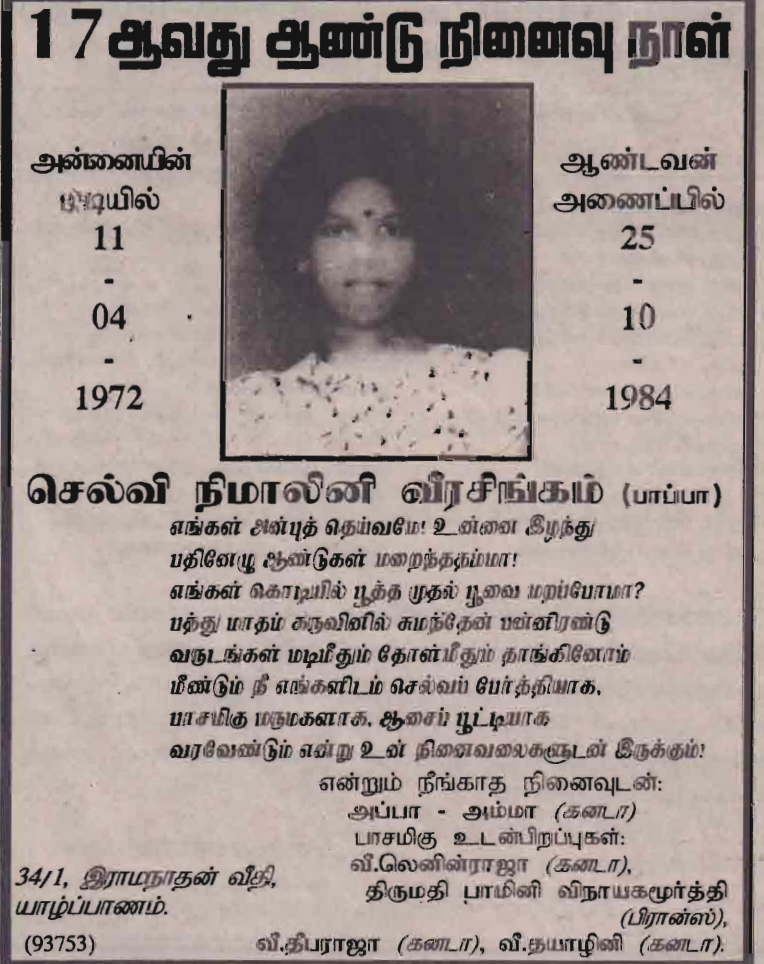 17 ஆவது ஆண்டு நினைவு நாள்
அன்னையின்
மடியில்
11
-
04
-
1972
ஆண்டவன்
அணைப்பில்
25
-
10
-
1984
செல்வி நிமாலினி வீரசிங்கம் (பாப்பா)
எங்கள் அன்புத் தெய்வமே! உன்னை இழந்து
பதினேழு ஆண்டுகள் மறைந்ததம்மா!
எங்கள் கொடியில் பூத்த முதல் பூவை மறப்போமா?
பத்து மாதம் கருவினில் சுமந்தேன் பன்னிரண்டு
வருடங்கள் மடிமீதும் தோள்மீதும் தாங்கினோம்
மீண்டும் நீ எங்களிடம் செல்வப் பேர்த்தியாக,
பாசமிகு மருமகளாக, ஆசைப் பூட்டியாக
வரவேண்டும் என்று உன் நினைவலைகளுடன் இருக்கும்!
என்றும் நீங்காத நினைவுடன்:
அப்பா - அம்மா (கனடா)
பாசமிகு உடன்பிறப்புகள்:
வீ.லெனின்ராஜா (கனடா),
திருமதி பாமினி விநாயகமூர்த்தி
(பிரான்ஸ்),
வீ.தீபராஜா (கனடா), வீ.தயாழினி (கனடா).
34/1, இராமநாதன் வீதி,
யாழ்ப்பாணம்.
(93753)